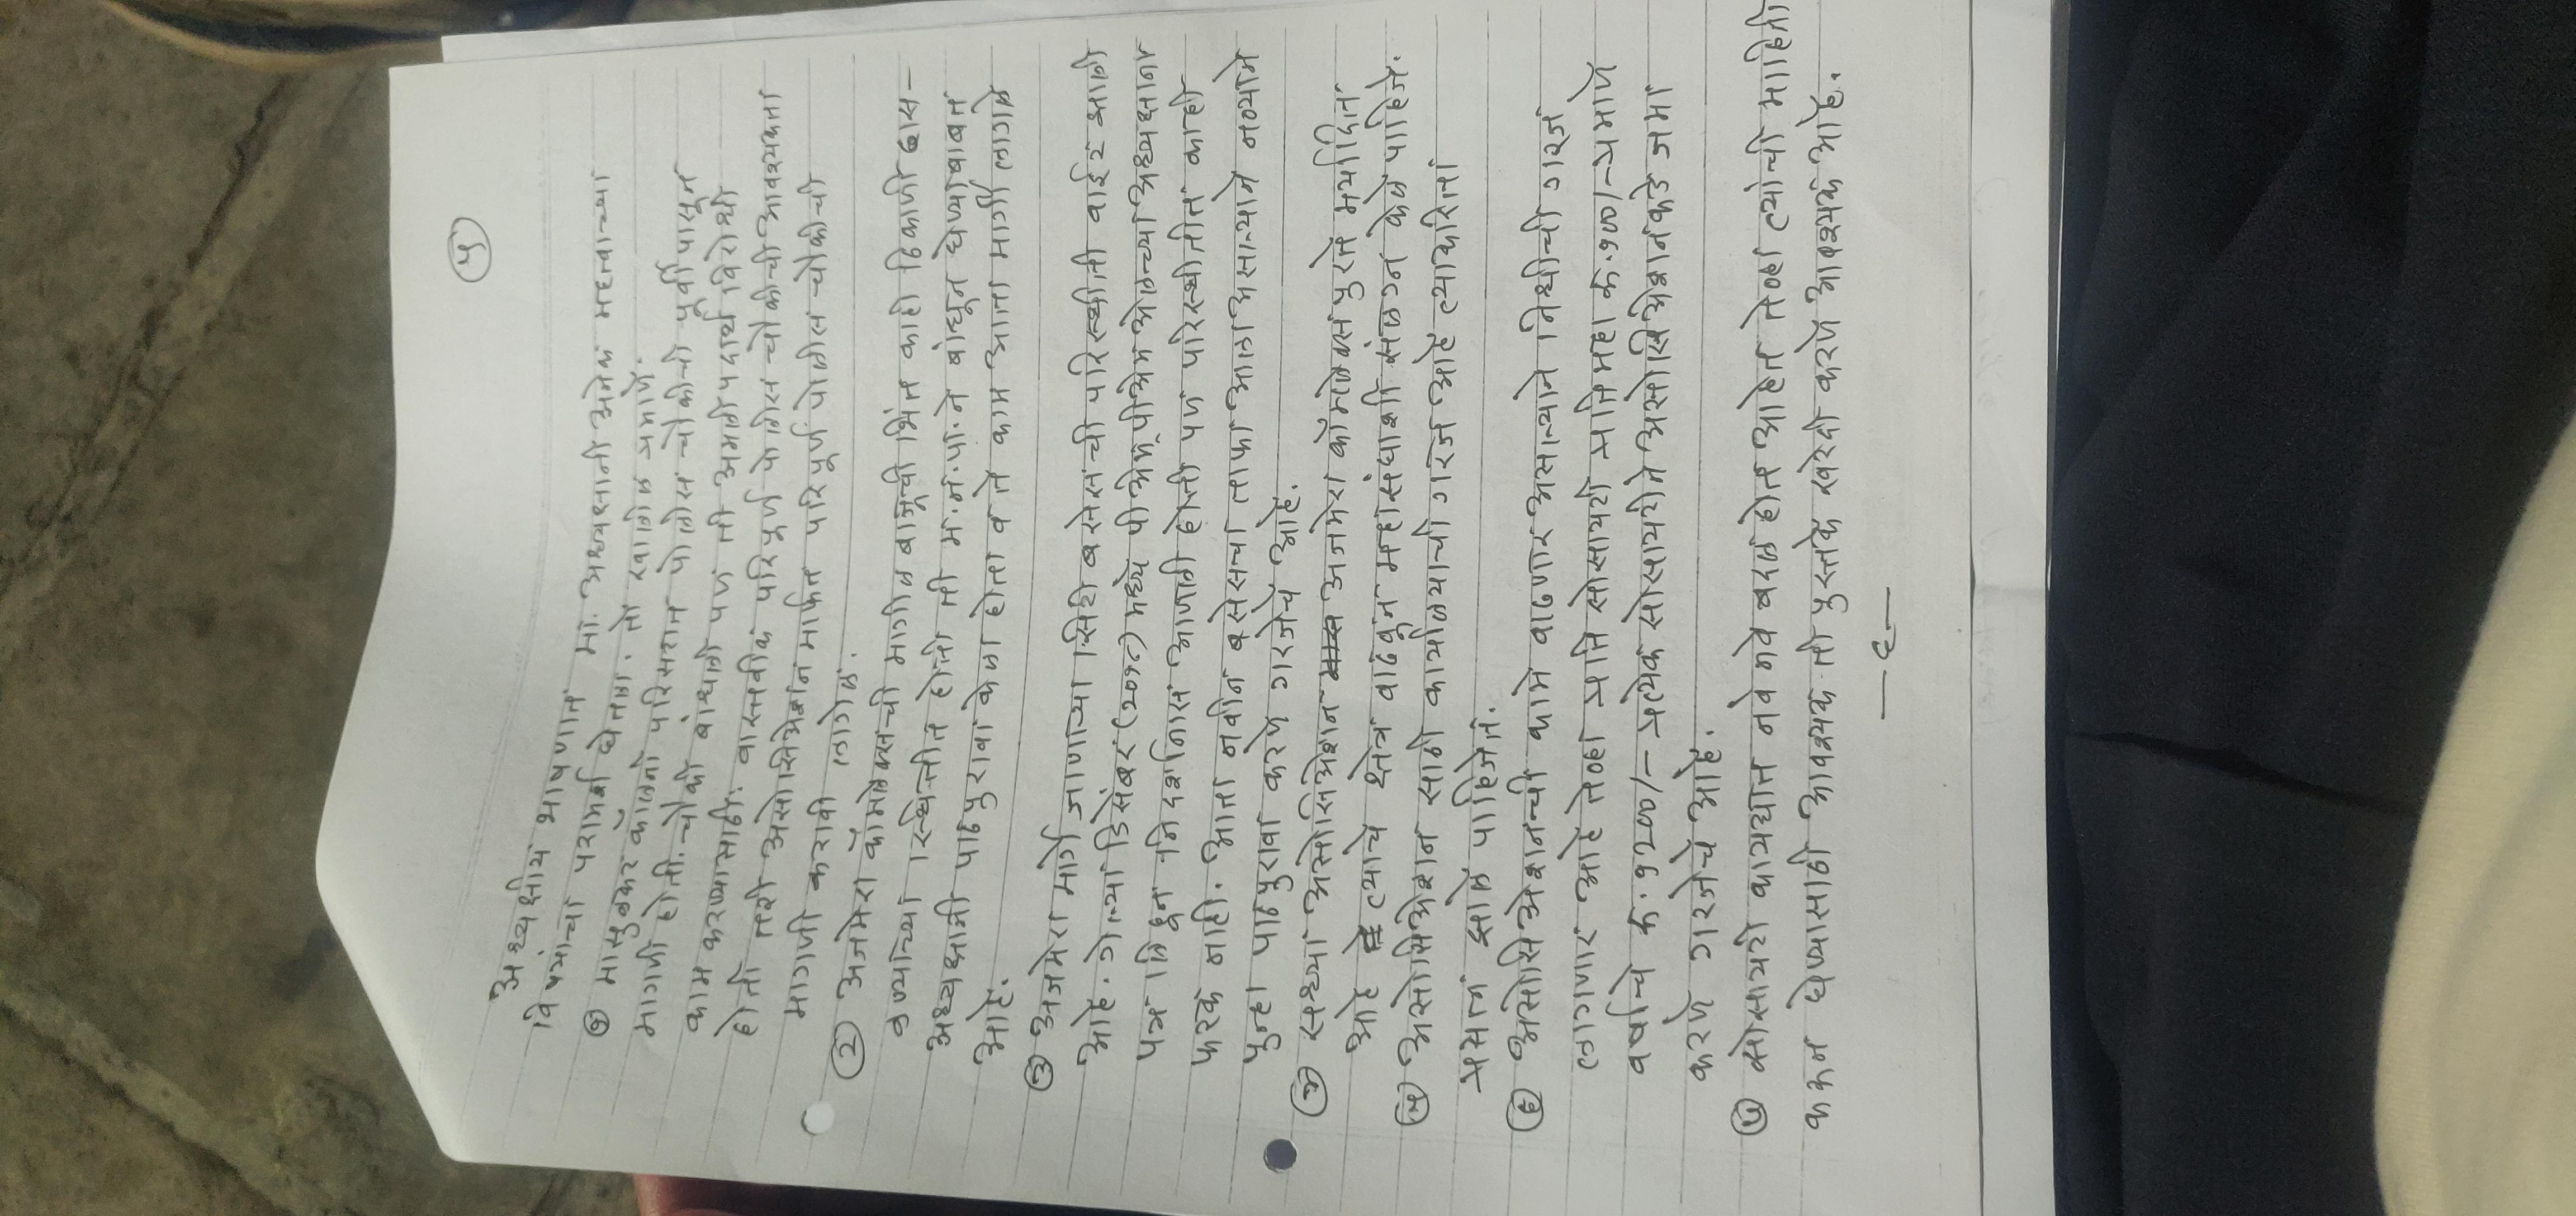 ५
अध्यक्षीय भाषणात मा. अध्यक्षानी अनेक महत्वाच्या
विषयांचा परामर्श घेतला. तो खालील प्रमाणे.
१ मासुळकर कॉलनी परिसरात पोलीस चौकीची पूर्वीपासून
मागणी होती. चौकी बांधली पण ती अमली पदार्थ विरोधी
काम करण्यासाठी. वास्तवीक परिपूर्ण पोलीस चौकीची आवश्यकता
होती तरी असोसिअेशन मार्फत परिपूर्ण पोलीस चौकीची
मागणी करावी लागेल.
२ अजमेरा कॉम्प्लेक्सची मागील बाजूची भिंत काही ठिकाणी ढास-
ळण्याच्या स्थितीत होती ती म.न.पा.ने बांधून घेण्याबाबत
अध्यक्षानी पाठपुरावा केला होता व ते काम आता मार्गी लागले
आहे.
३ अजमेरा मार्गे जाणाऱ्या सिटी बसेसची परिस्थीती वाईट झाली
आहे. गेल्या डिसेंबर (२०१८) मध्ये पीअेम्पीअेम अेलच्या अध्यक्षाना
पत्र लिहून निदर्शनास आणली होती पण परिस्थीतीत काही
फरक नाही. आता नवीन बसेसचा ताफा आला असल्याने नव्याने
पुन्हा पाठपुरावा करणे गरजेचे आहे.
४ सध्या असोसिअेशन अजमेरा कॉम्प्लेक्स पुरते मर्यादित
आहे त्याचे क्षेत्र वाढवून महासंघाशी संलग्न केले पाहिजे.
५ असोसिअेशन साठी कार्यालयाची गरज आहे त्याकरिता
प्रयत्न झाले पाहिजेत.
६ असोसिअेशनची कामे वाढणार असल्याने निधीची गरज
लागणार आहे तेव्हा प्रति सोसायटी प्रतिमहा रू.१००/- प्रमाणे
वर्षाचे रू.१२००/- प्रत्येक सोसायटीने असोसिअेशनकडे जमा
करणे गरजेचे आहे.
७ सोसायटी कायद्यात नवे नवे बदल होत आहेत तेव्हा त्यांची माहिती
करून घेण्यासाठी आवश्यक ती पुस्तके खरेदी करणे आवश्यक आहे.
—६—